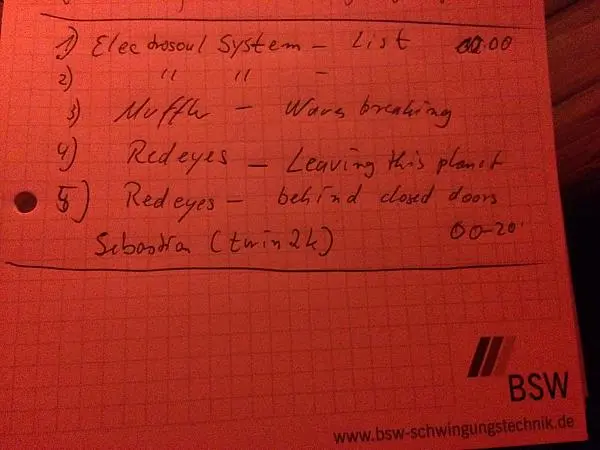 1) Electrosoul System - List 00.00
2) " " -
3) Muffler - Waves breaking
4) Redeyes - Leaving this planet
5) Redeyes - behind closed doors
Sebastian (twin2k) 00-20'
BSW
www.bsw-schwingungstechnik.de